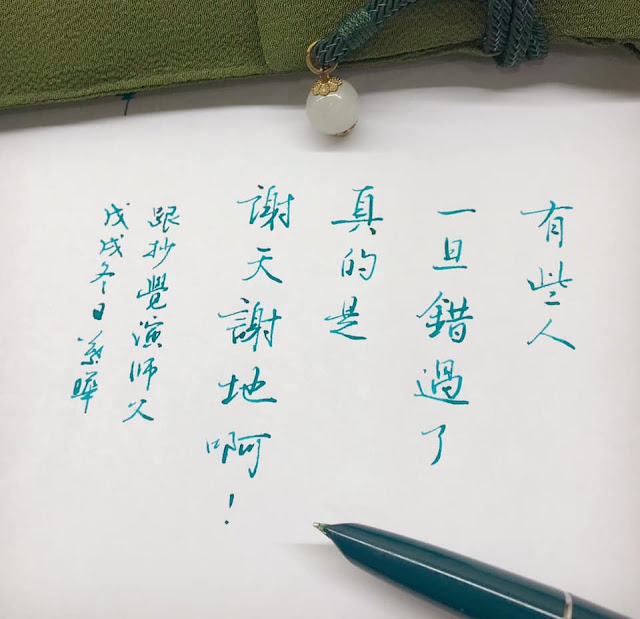 有些人
一旦錯過了
真的是
謝天謝地啊！
跟抄覺演師父
戊戌冬日 曄